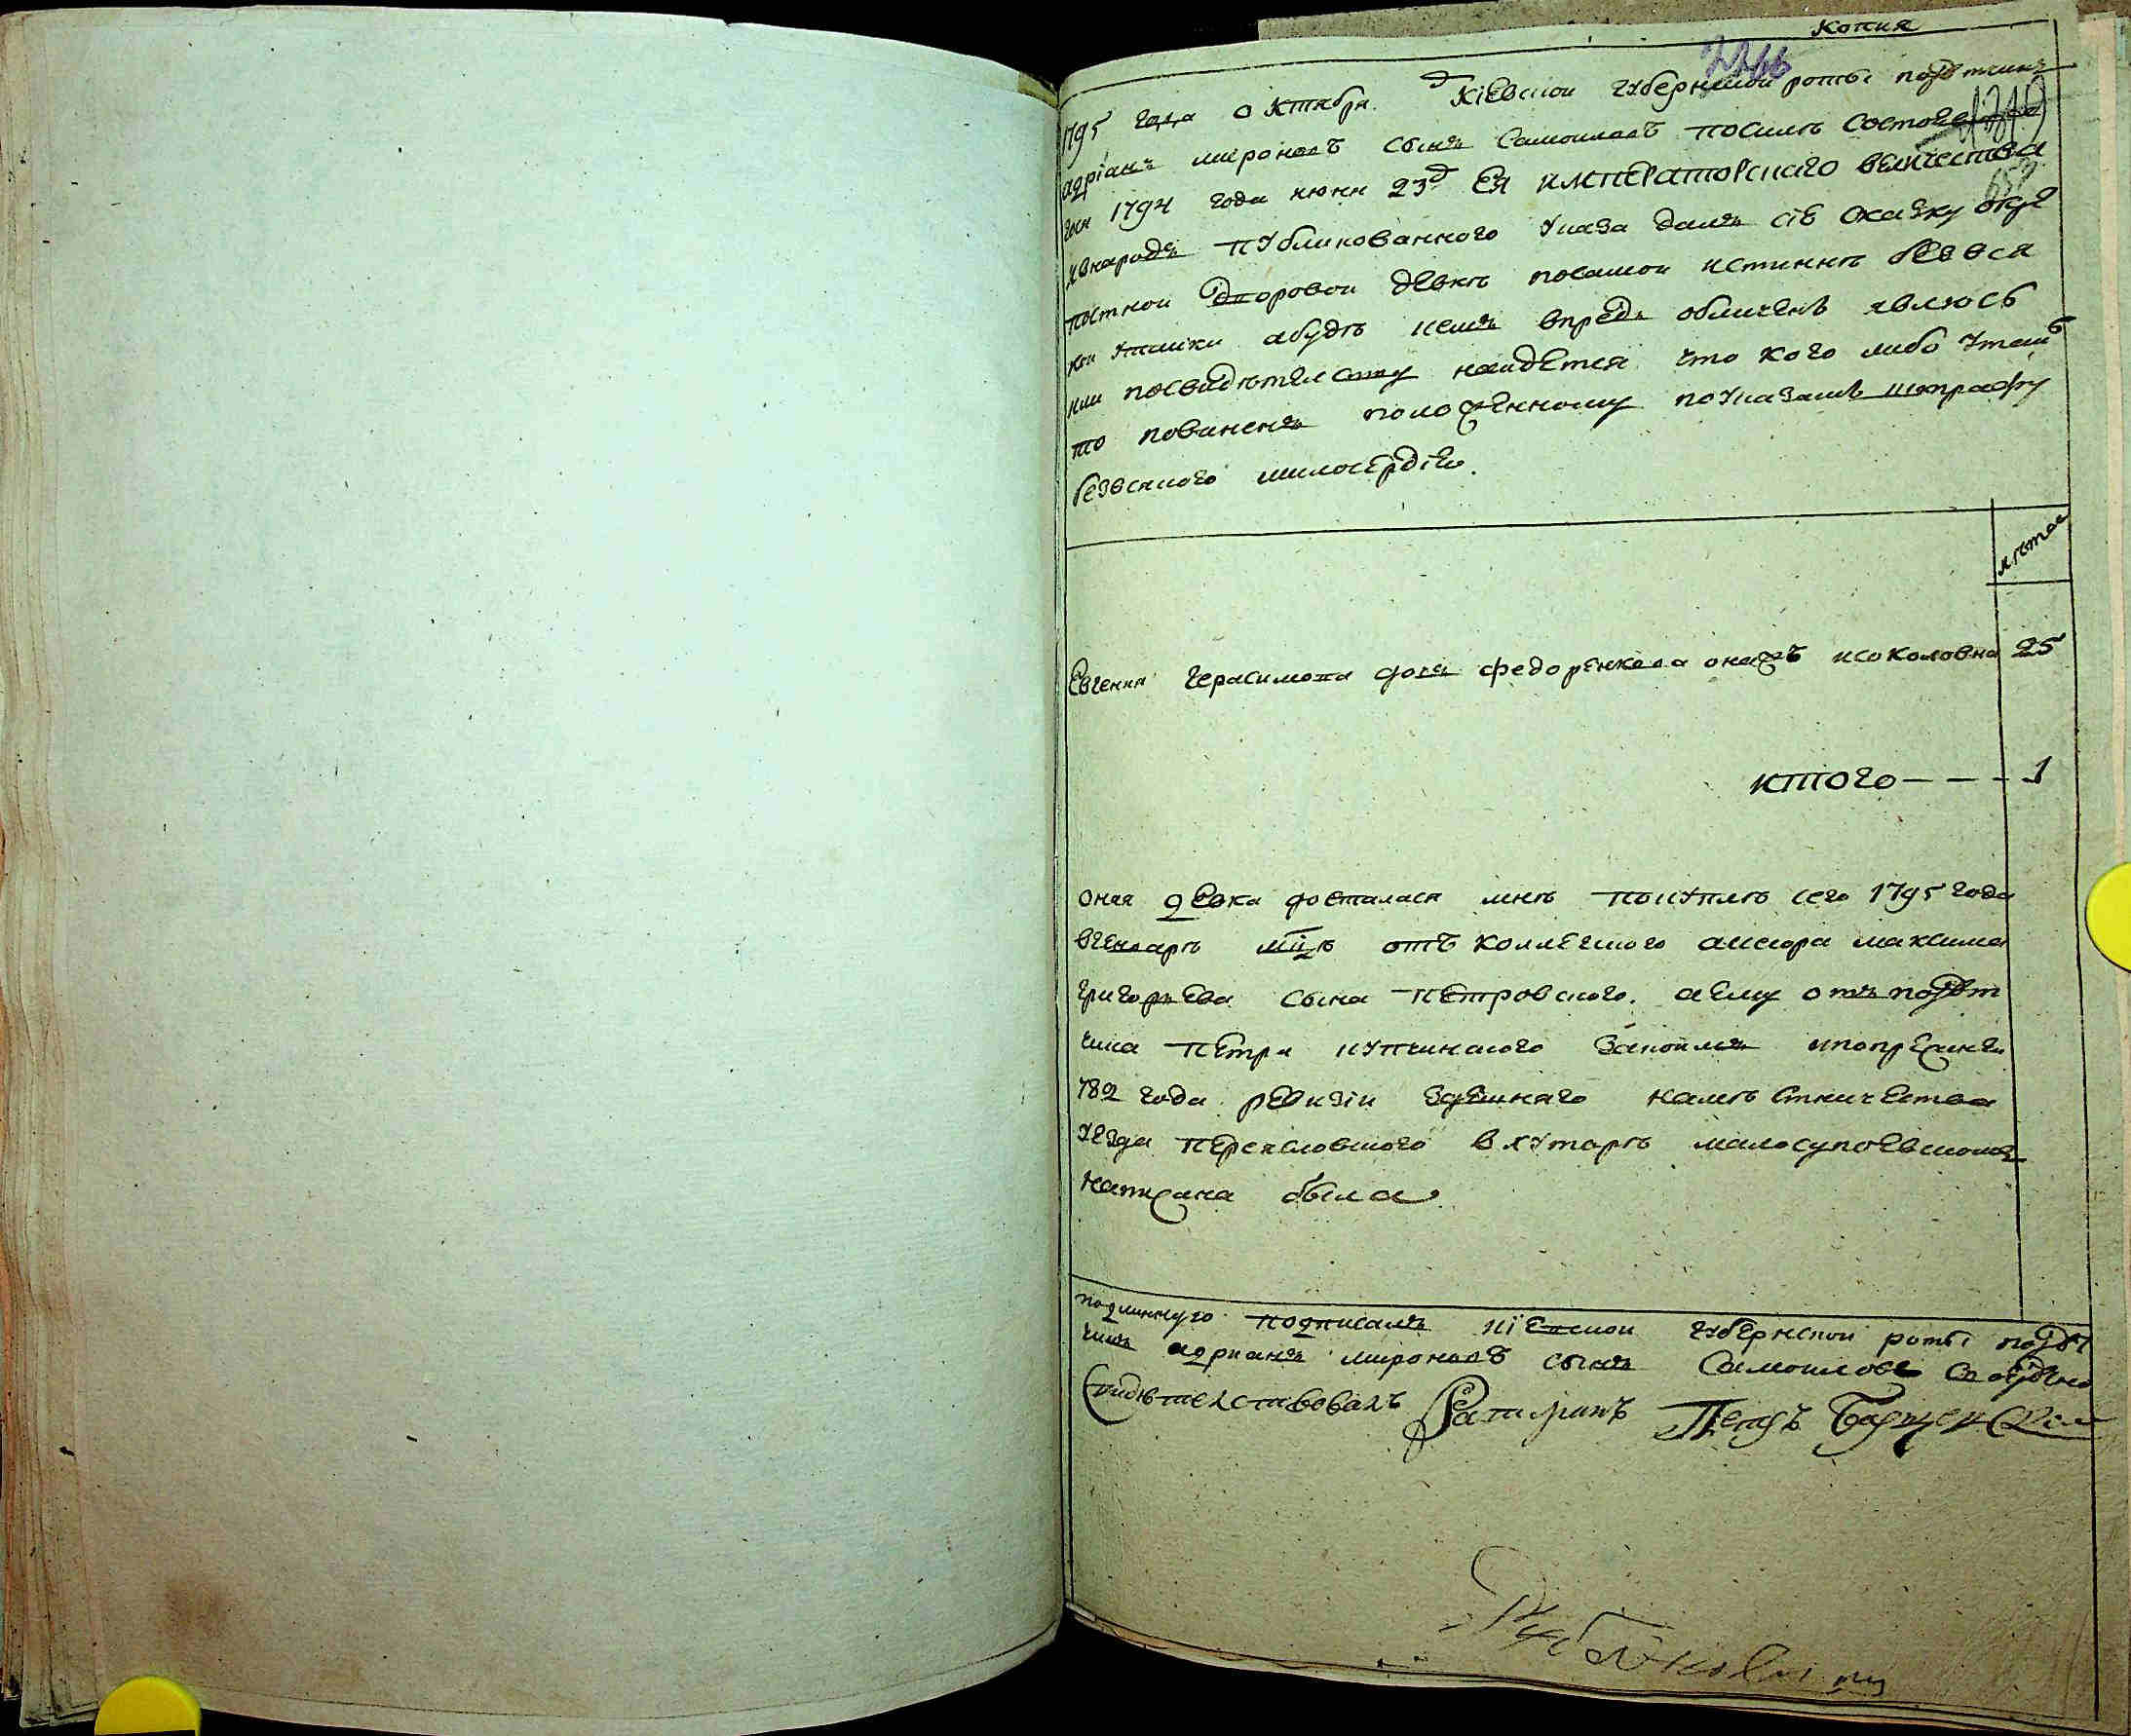 Копия
1795 года октября д Кіевской губернской роты порутчикъ
адріанъ мироновъ сынъ Самоиловъ посилѣ состояв
1794 года июня 23д Ея императорскаго величества
увнародъ публикованного указа далъ сіе сказку
постной дворовой девкѣ посамой истиннѣ безвся
кои утаики абудѣ кемъ впредь обличенъ явлюсь
или посвидѣтелству наидется что кого либо утаилъ
то повиненъ положенному поуказамъ штрафу
безвсякого милосердія.
лѣтас
Евгения Герасимова дочь федоренкова онажъ исоколовна 25
итого — — — 1
оная девка досталася мнѣ покуплѣ сего 1795 года
вгенварѣ мцѣ отъ коллегского асесора максима
григорьева сына петровского. аему отъ порут
чика петра купчинского ипопрежнеи
782 года ревизіи здешняго намѣстничества
уезда переясловского вхуторѣ малосупоевскомъ
написана была
подлинную подписалъ кіевской губернской роты порут
чикъ адрианъ мироновъ сынъ Самоиловъ
Свидѣтелствовалъ Петръ